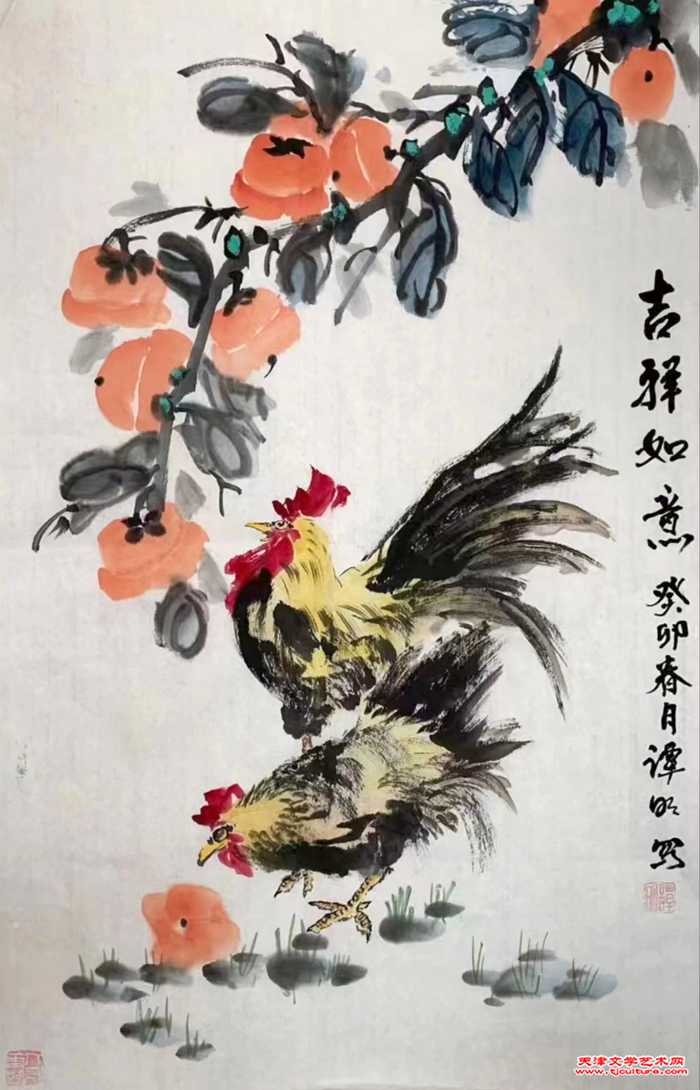 吉祥如意 癸卯春月谭明写
天津文学艺术网
www.tjculture.com